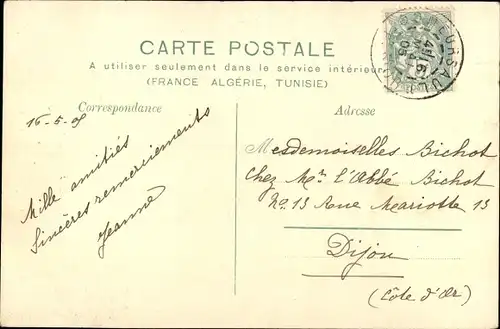 CARTE POSTALE
A utiliser seulement dans le service intérieur
(FRANCE ALGÉRIE, TUNISIE)
Correspondance
Adresse
16-5-05
Mille amitiés
Sincères remerciements
Jeanne
Mesdemoiselles Bichot
Chez Mr. l'Abbé Bichot
No. 13 Rue Mariotte 13
Dijon
(Côte d'Or)